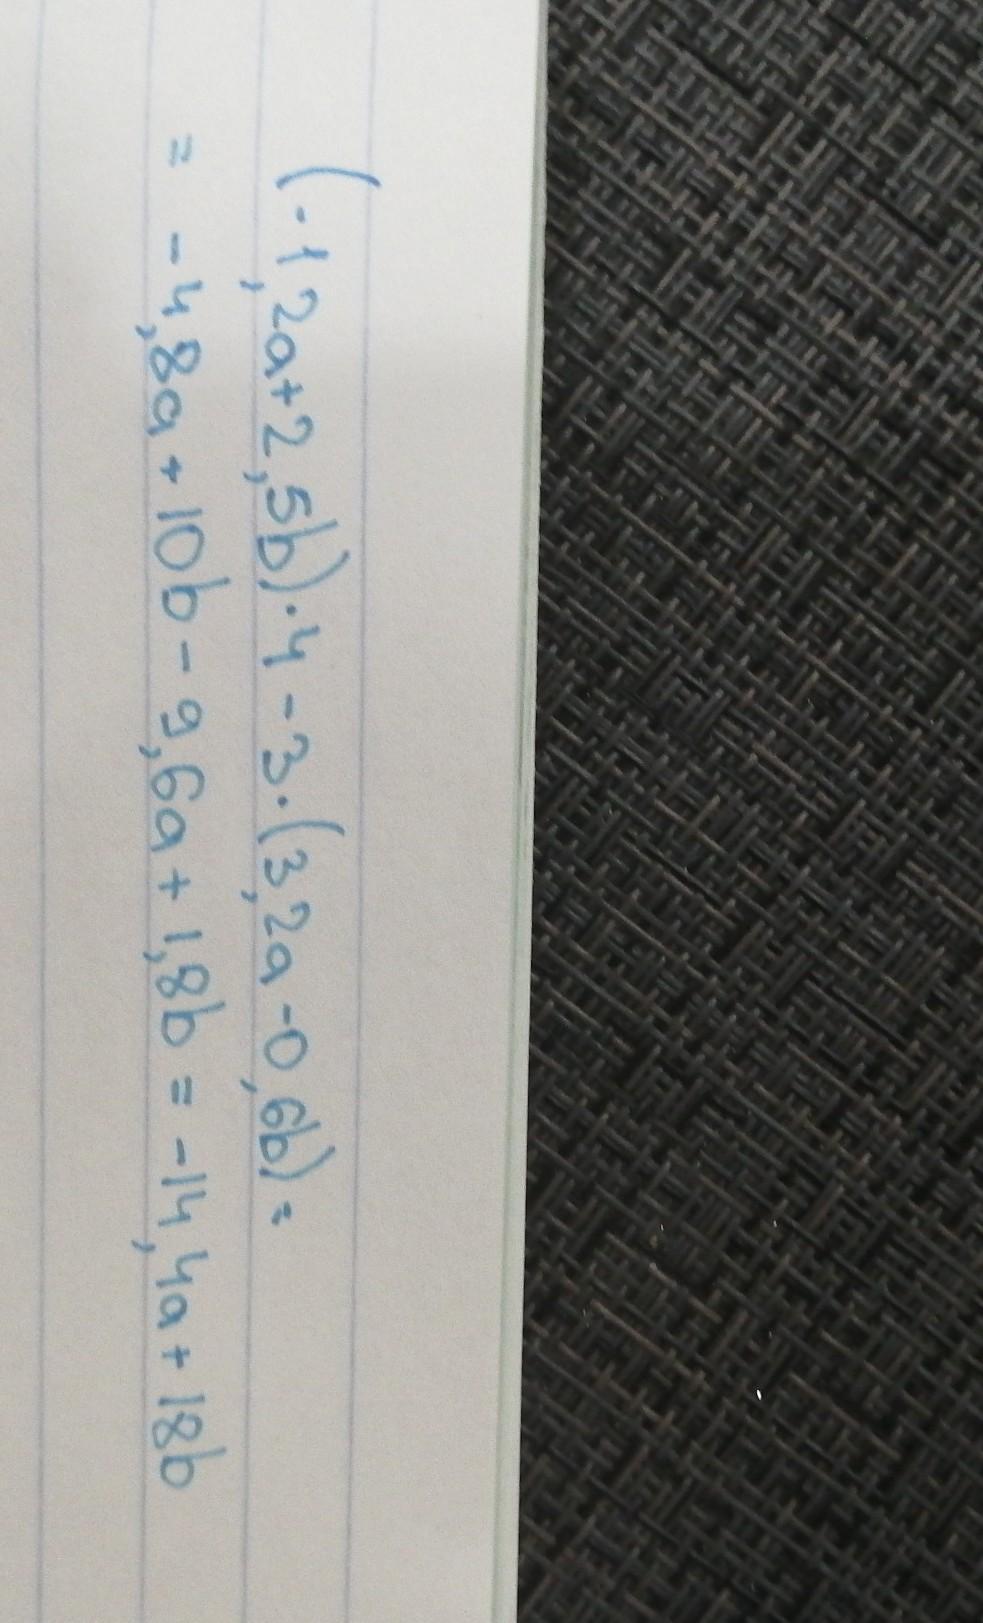 (-1,2a+2,5b)·4-3·(3,2a-0,6b)=
= -4,8a+10b-9,6a+1,8b = -14,4a+18b